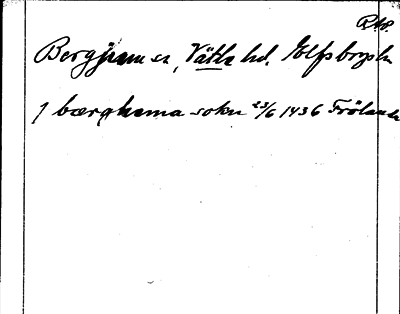 RAp.
Bergjum sn, Vätle hd. Elfsborgs ln
J bærghema sokn 23/6 1436 Frölanda